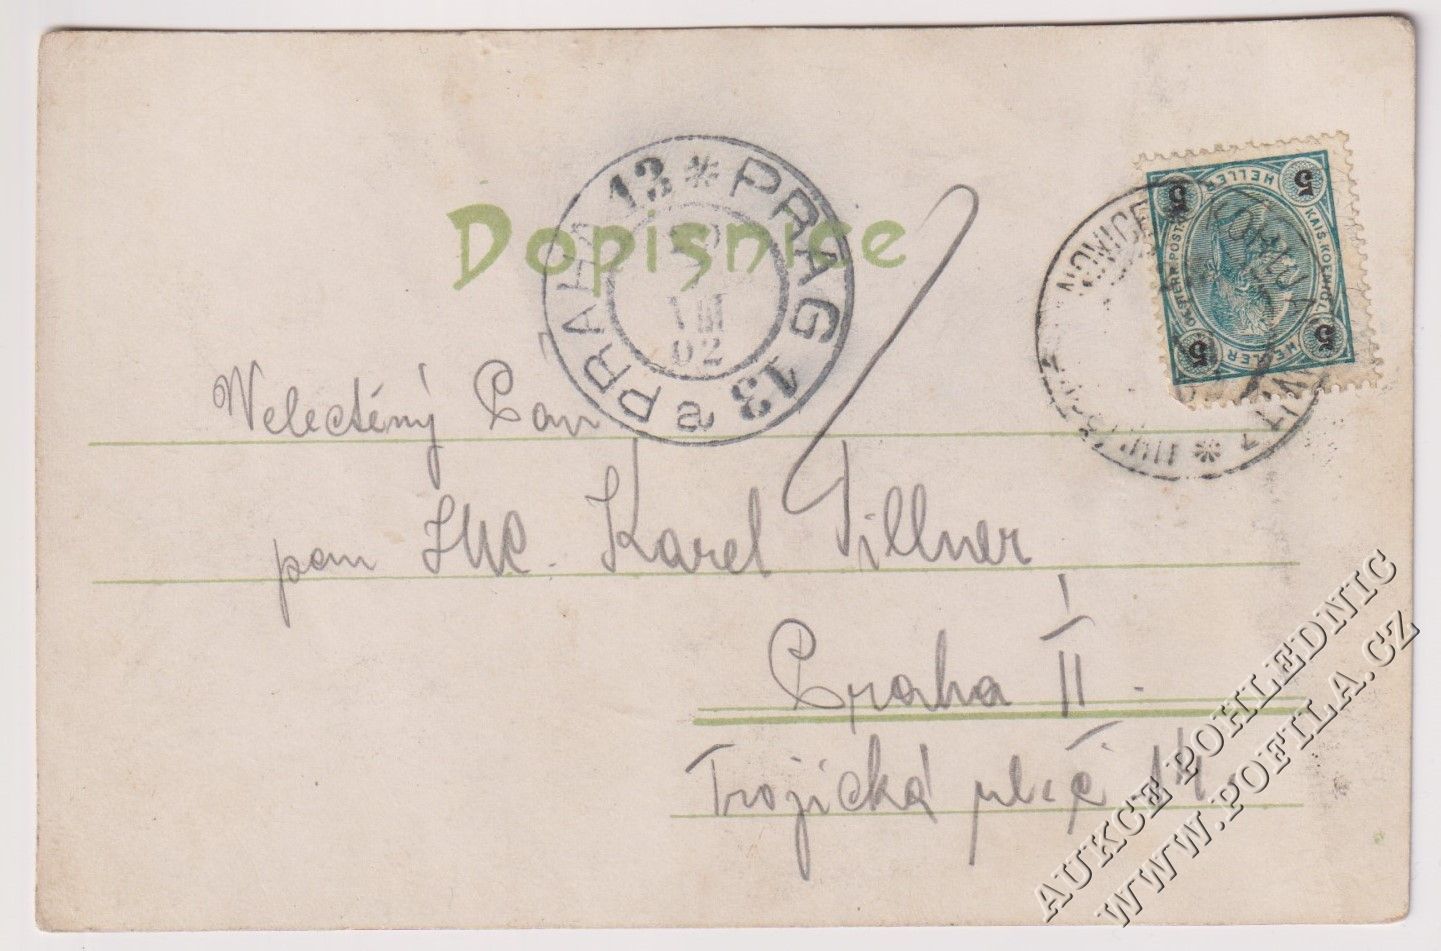 Dopisnice
PRAG 13 * PRAHA 13 a
VIII
02
5 HELLER 5
KAIS. KOENIGL.
5 HELLER 5
Velectěný Pan
pan JUC. Karel Tillner
Praha II.
Trojická ulic č. 14.
AUKCE POHLEDNIC
WWW.POFILA.CZ